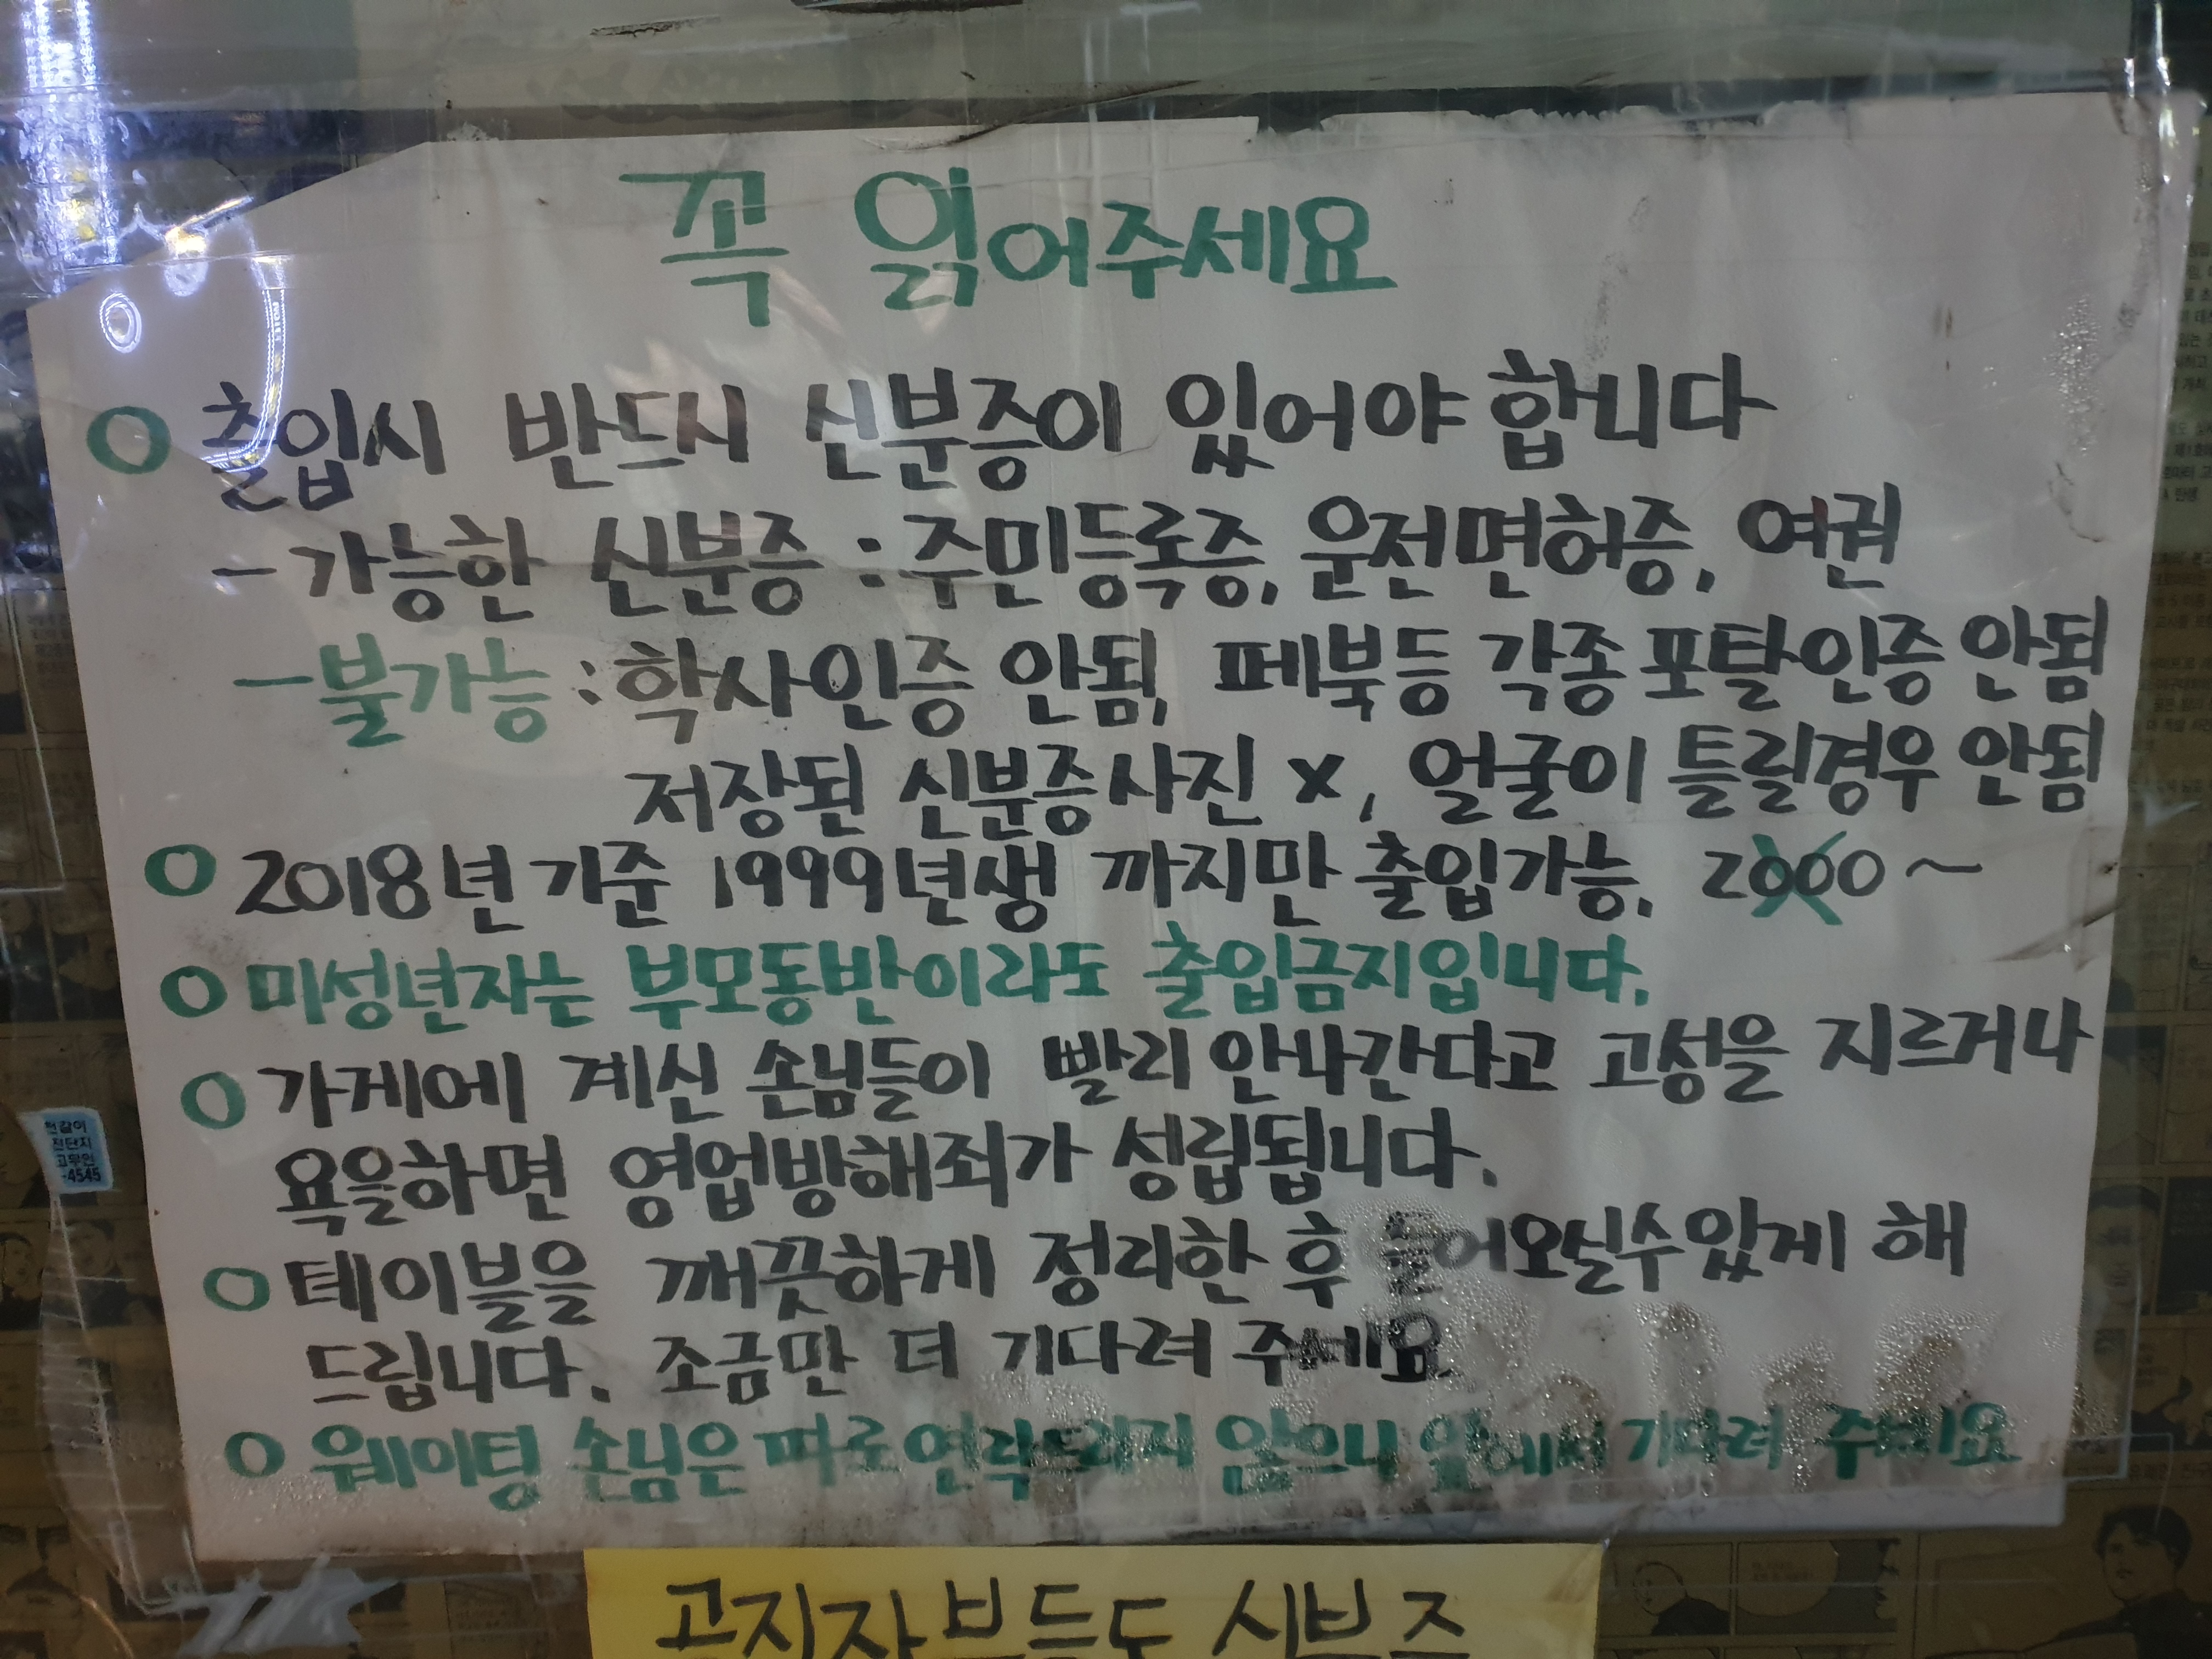 꼭 읽어주세요
O 출입시 반드시 신분증이 있어야 합니다
-가능한 신분증 : 주민등록증, 운전면허증, 여권
-불가능 : 학사인증 안됨, 페북등 각종 포탈인증 안됨
저장된 신분증사진 x, 얼굴이 틀릴경우 안됨
O 2018년 기준 1999년생 까지만 출입가능. 2000~
O 미성년자는 부모동반이라도 출입금지입니다.
O 가게에 계신 손님들이 빨리 안나간다고 고성을 지르거나
욕을하면 영업방해죄가 성립됩니다.
O 테이블을 깨끗하게 정리한 후 들어오실수있게 해
드립니다. 조금만 더 기다려 주세요
O 웨이팅 손님은 따로연락드리지 않으니 앞에서 기다려 주세요
-4545